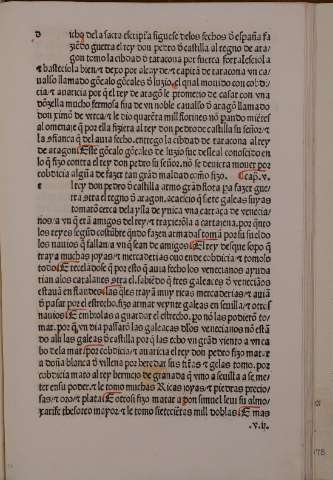 dichos dela sacra escriptura siguese delos fechos de españa fa
ziedo guerra el rey don pedro de castilla al regno de ara
gon tomo la cibdad de taraçona por fuerça fortalesciola
& basteciola bien & dexo por alcayde & capitã de taraçona vn ca
uallo llamado gõçalo gõçales de luzio el qual mouido con cobdi
cia & auaricia por q̃ el rey de aragõ le prometio de casar con vna
dõzella mucho fermosa fija de vn noble cauallo de aragõ llamado
don ximo de vrrea & le dio quarẽta mill florines nõ parãdo miẽtes
al omenaje q̃ por ella fiziera al rey don pedro de castilla su señor &
la fiança q̃ del auia fecho entrego la cibdad de taraçona al rey
de aragon Este gõçalo gõçales de luzio
lo q̃ fizo contra el rey don pedro su señor nõ se deuiera mouer por
cobdicia algũa de fazer tan grãd maldad como fizo Cap. v.
el rey don pedro de castilla armo grãd flota pa fazer gue
rra contra el regno de aragon acaecio q̃ siete galeas suyas
tomarõ cerca dela ysla de ynica vna carraca de venecia
nos & vn q̃ erã amigos del rey & traxierõla a cartajena por q̃nto
los reyes segund costũbre quãdo fazen armada toman por su sueldo
los nauios q̃ fallan avn q̃ sean de amigos El rey desque sopo q̃
traya muchas joyas & mercaderias ouo ende cobdicia & tomolo
todo E recelãdose q̃ por esto q̃ auia fecho los venecianos ayuda
rian alos catalanes contra el sabiedo q̃ tres galeaças de veneciãos
estauã en flandes las q̃les trayã muy ricas mercaderias & auiã
de pasar por el estrecho fizo armar veynte galeas en seuilla & otros
nauios E embiolas a guardar el estrecho po nõ las podierõ to
mar por q̃ vn dia passarõ las galeaças dlos venecianos nõ estã
do alli las galeas de castilla por q̃ las echo vn grãd viento a vn ca
bo dela mar por cobdicia & auaricia el rey don pedro fizo matar
a doña blanca de villena por heredar sus tierras & gelas tomo por
cobdicia mato al rey bermejo de granada q̃ vino a seuilla a se me
ter en su poder & le tomo muchas Ricas joyas & piedras precio
sas & oro & plata E otrosi fizo matar a don simuel leui su almo
xarife thesorero mayor & le tomo sietecientas mill doblas E mas
.v. ij.
178